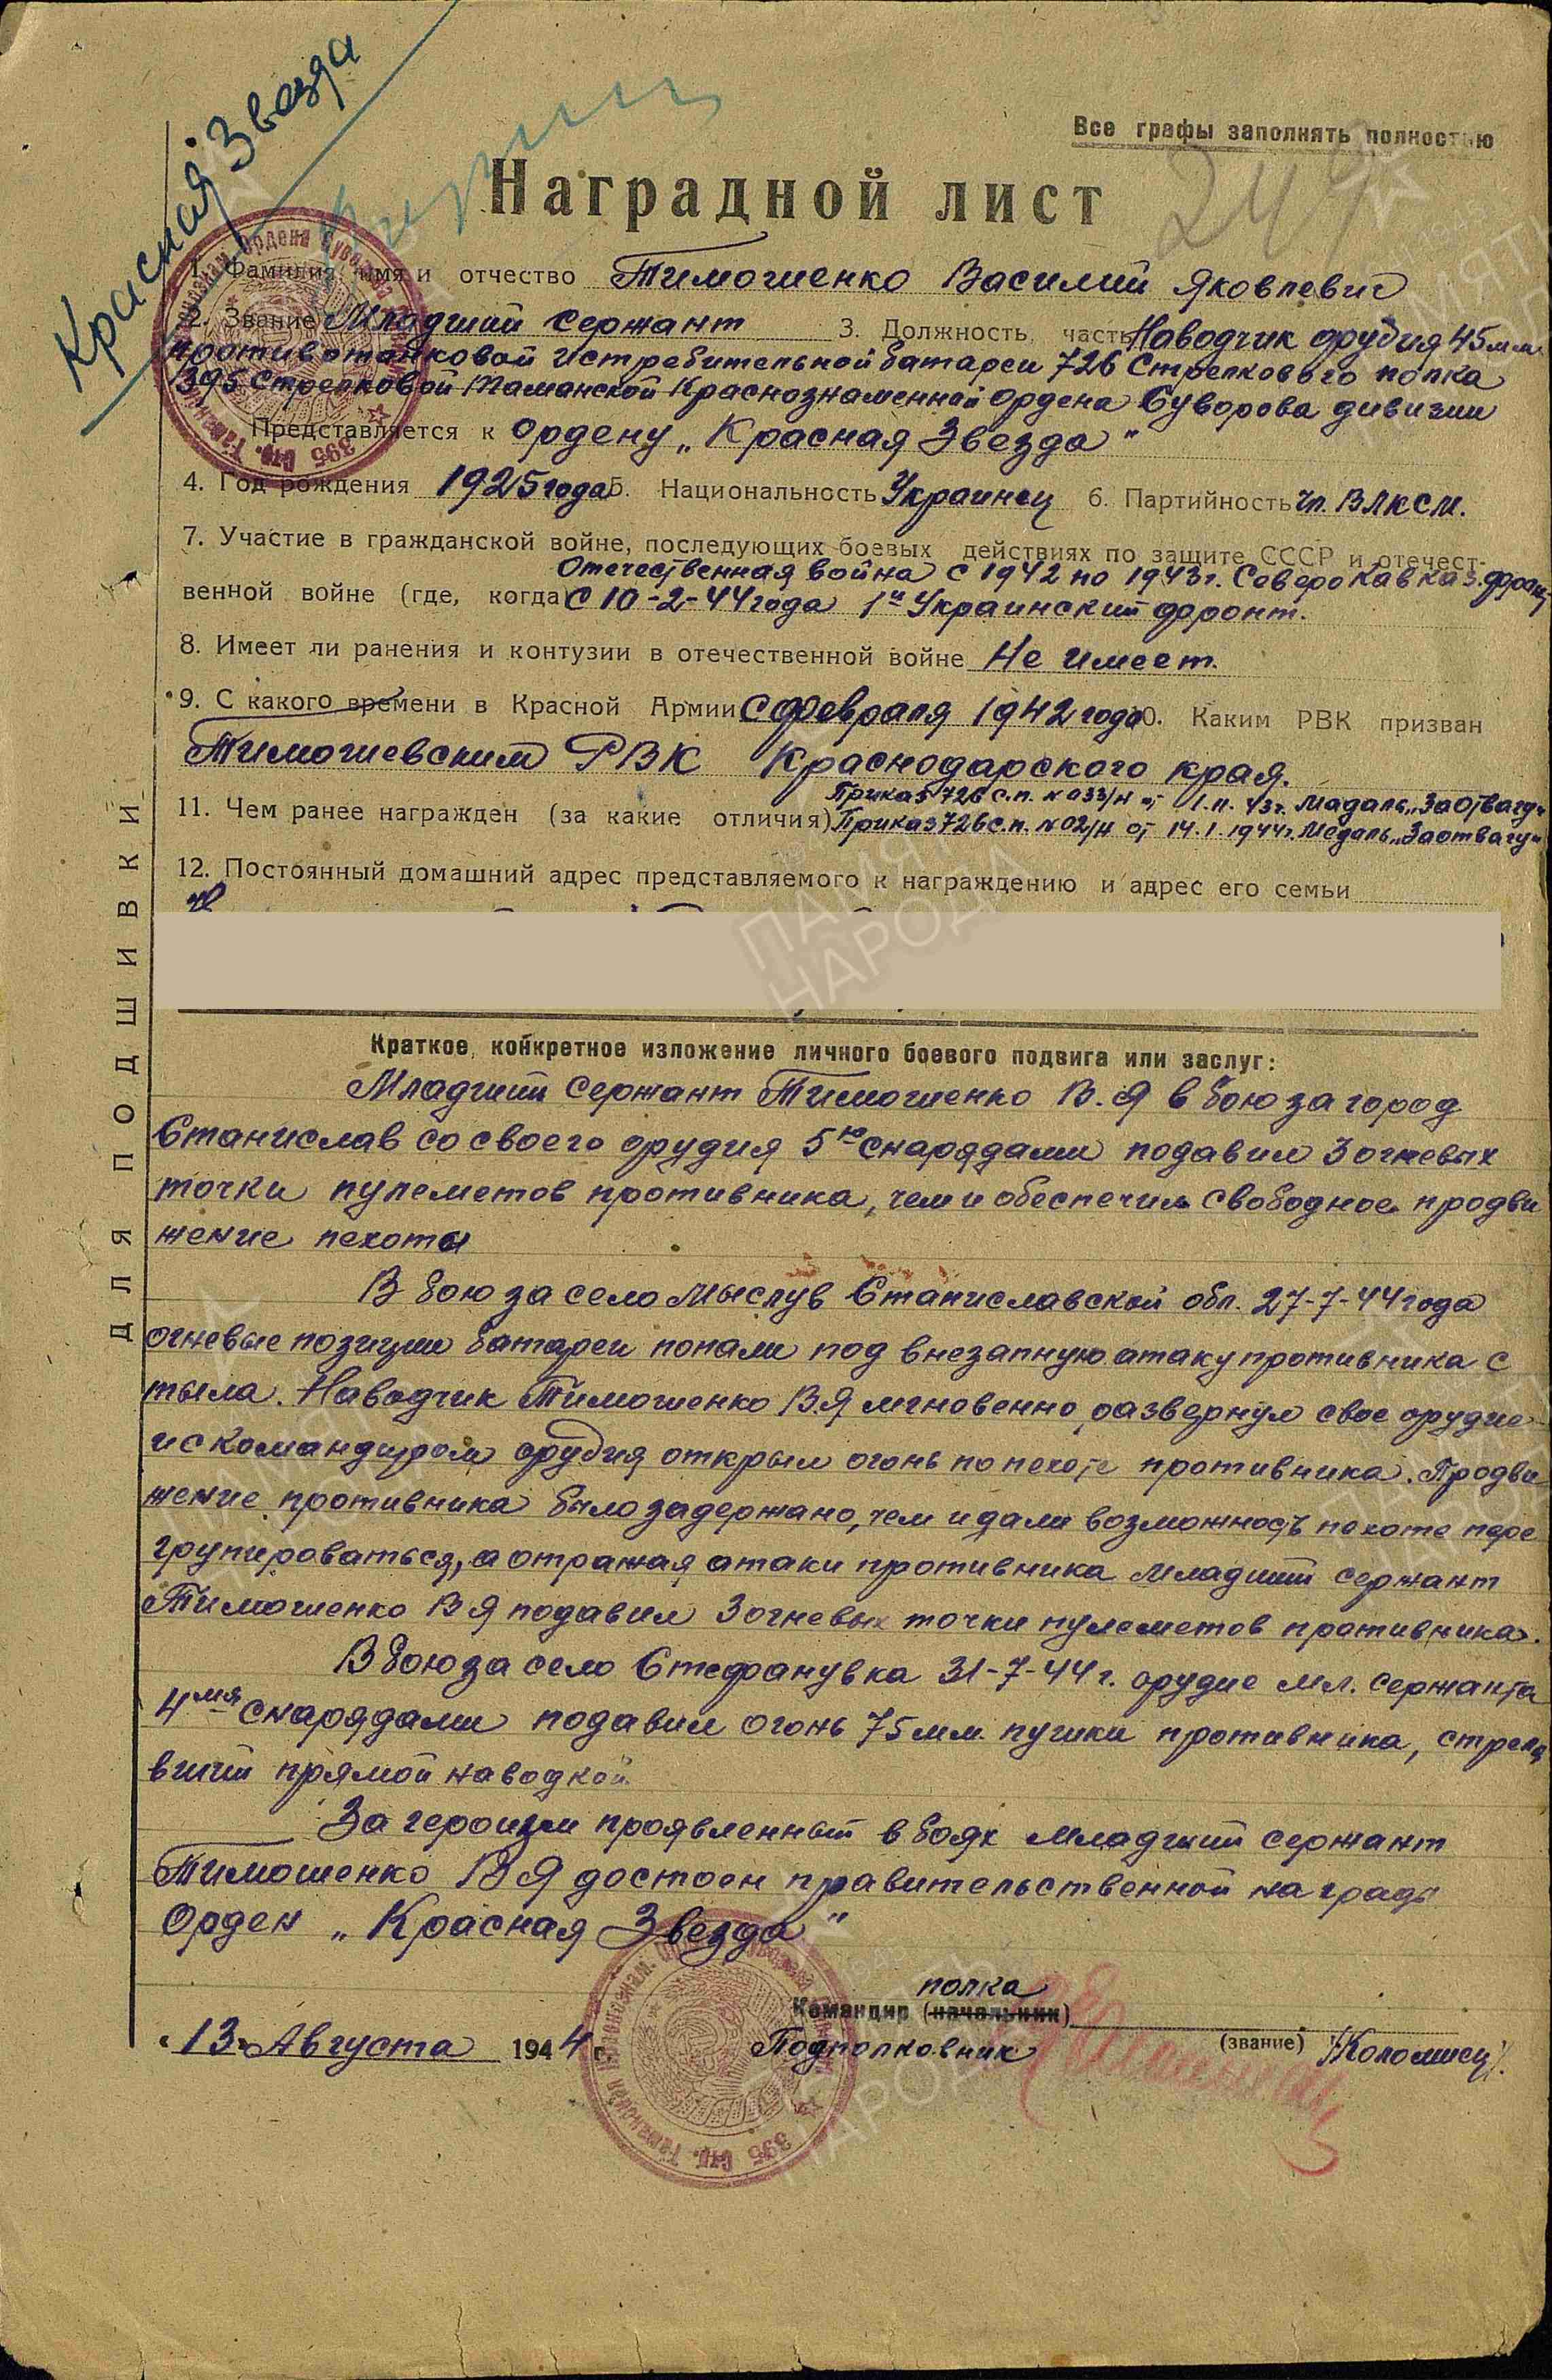 Красная Звезда
Все графы заполнять полностью
249
Наградной лист
1. Фамилия, имя и отчество Тимошенко Василий Яковлевич
2. Звание Младший сержант 3. Должность, часть Наводчик орудия 45 мм
противотанковой истребительной батареи 726 Стрелкового полка
395 Стрелковой Таманской Краснознаменной ордена Суворова дивизии
Представляется к ордену „Красная Звезда"
4. Год рождения 1925 года 5. Национальность Украинец 6. Партийность чл. ВЛКСМ.
7. Участие в гражданской войне, последующих боевых действиях по защите СССР и отечест-
Отечественная война с 1942 по 1943 г. Северо Кавказ. фронт
венной войне (где, когда) с 10-2-44 года 1й Украинский фронт.
8. Имеет ли ранения и контузии в отечественной войне Не имеет.
9. С какого времени в Красной Армии С февраля 1942 года 10. Каким РВК призван
Тимошевским РВК Краснодарского края.
Приказ 726 с.п. N 033/н от 1.11.43 г. Мадаль „За Отвагу"
11. Чем ранее награжден (за какие отличия) Приказ 726 с.п. N 02/н от 14.1.1944 г. Медаль „За отвагу"
12. Постоянный домашний адрес представляемого к награждению и адрес его семьи
Краткое, конкретное изложение личного боевого подвига или заслуг:
Младший Сержант Тимошенко В.Я в бою за город
Станислав со своего орудия 5ю снарядами подавил 3 огневых
точки пулеметов противника, чем и обеспечил свободное продви
жение пехоты
В бою за село Мыслув Станиславской обл. 27-7-44 года
огневые позиции батареи попали под внезапную атаку противника с
тыла. Наводчик Тимошенко В.Я мгновенно развернул свое орудие
и с командиром орудия открыл огонь по пехоте противника. Продви
жение противника было задержано, чем и дали возможность пехоте пере
групироваться, а отражая атаки противника младший сержант
Тимошенко В Я подавил 3 огневых точки пулеметов противника.
В бою за село Стефанувка 31-7-44 г. орудие мл. сержанта
4мя снарядами подавил огонь 75 мм. пушки противника, стреля
вший прямой наводкой.
За героизм проявленный в боях младший сержант
Тимошенко В Я достоен правительственной награды
Орден „Красная Звезда"
полка
Командир (начальник)
(звание)
„13" Августа 1944 г. Подполковник /Коломиец/.
ДЛЯ ПОДШИВКИ
395 Стр. Таманская Краснознам. Ордена Суворова
395 Стр. Таманская Краснознам. Ордена Суворова
ПАМЯТЬ НАРОДА